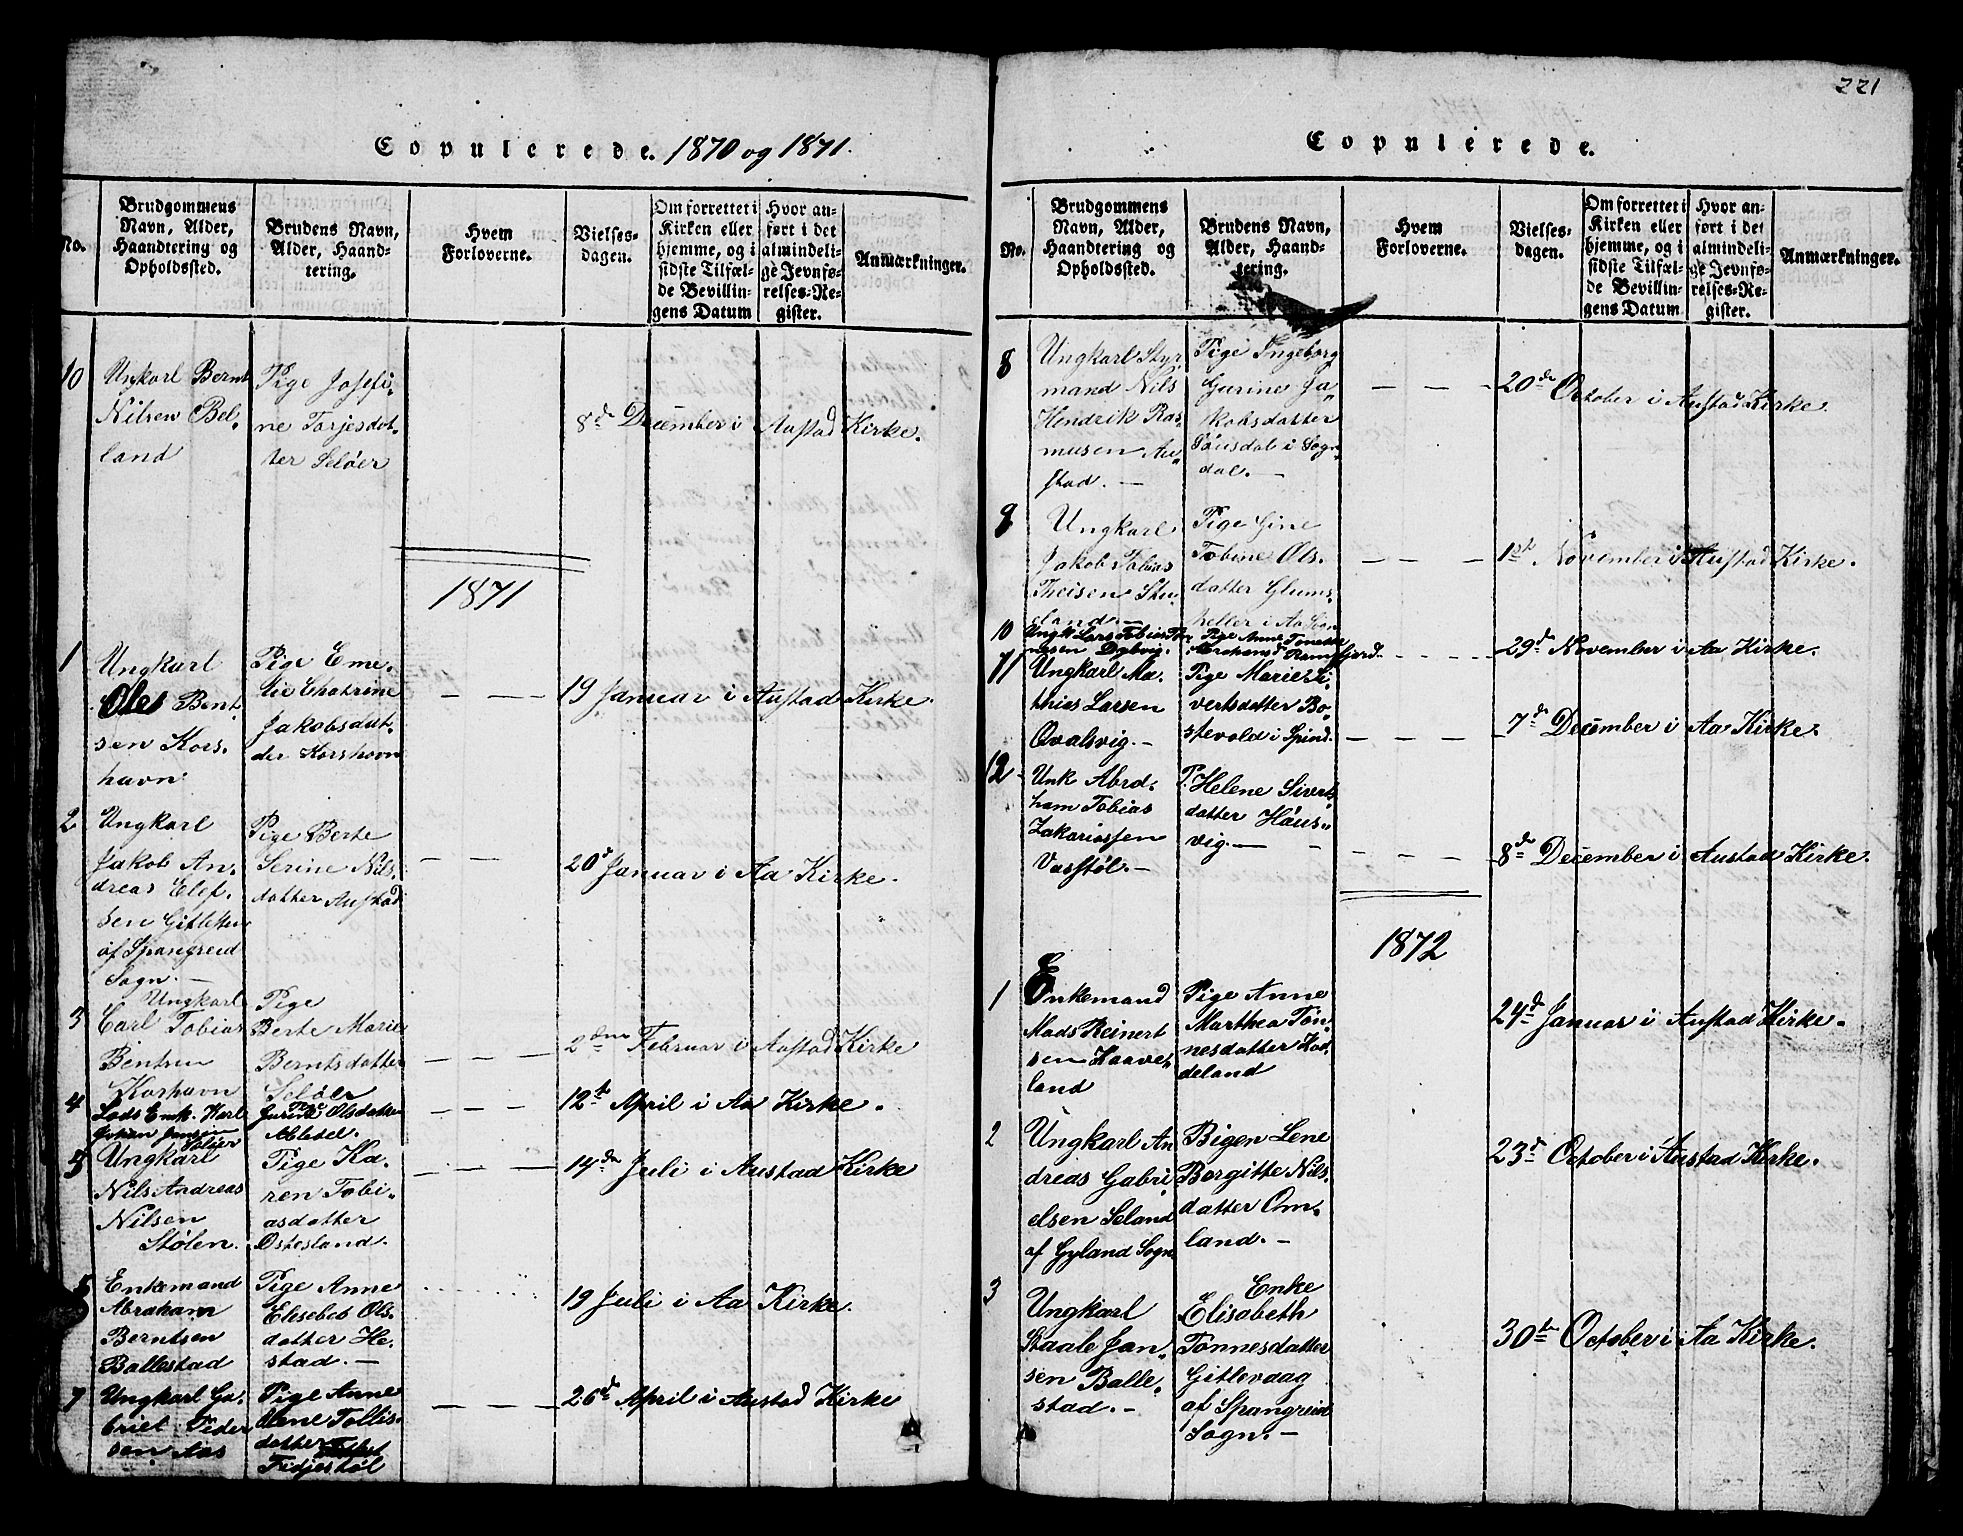 Copulerede. 1870 og 1871.
No.
Brudgommens
Navn, Alder,
Haandtering og
Opholdssted.
Brudens Navn,
Alder, Haand-
tering.
Hvem
Forloverne.
Vielses-
dagen.
Om forrettet i
Kirken eller
hjemme, og i
sidste Tilfæl-
de Bevillin-
gens Datum
Hvor an-
ført i det
almindeli-
ge Jevnfø-
relses-Re-
gister.
Anmærkninger.
10
Ungkarl Bernt
Nilsen Bel-
land
Pige Josefi-
ne Torjesdot-
ter Seløer
8de December i Austad Kirke.
1871
1
Ungkarl
Oles Bent-
sen Kors-
havn
Pige Eme-
lie Chatrine
Jakobsdat-
der Korshavn
— — —
19 Januar i Austad Kirke.
2
Ungkarl
Jakob An-
dreas Elef-
sen Gitletten
af Spangreid
Sogn. —
Pige Berte
Serine Nils-
datter Austad
— — —
20d Januar i Aa Kirke.
3
Ungkarl
Carl Tobias
Bentsen
Korhavn
Pige
Berte Marie
Berntsdatter
Seløer
— — —
2den Februar i Austad Kirke
4
Lods Enk. Karl
Johan Jensen
Seløer
Pige
Gurine Olsdatter
— — —
12te April i Aa Kirke.
5
Ungkarl
Nils Andreas
Nilsen
Stølen.
Pige Ka-
ren Tobi-
asdatter
Ostesland.
— — —
14de Juli i Austad Kirke
Enkemand
Abraham
Berntsen
Ballestad
Pige Anne
Elisebed Ols-
datter He-
stad. —
19 Juli i Aa Kirke.
7
Ungkarl Ga-
briel Peder
sen Aas
Pige Anne
Olene Tollis-
datter
Fidjestøl
— — —
26d April i Austad Kirke
221
Copulerede.
No.
Brudgommens
Navn, Alder,
Haandtering og
Opholdssted.
Brudens Navn,
Alder, Haand-
tering.
Hvem
Forloverne.
Vielses-
dagen.
Om forrettet i
Kirken eller
hjemme, og i
sidste Tilfæl-
de Bevillin-
gens Datum
Hvor an-
ført i det
almindeli-
ge Jevnfø-
relses-Re-
gister.
Anmærkninger.
8
Ungkarl Styr-
mand Nils
Hendrik Ras-
musen Au-
stad. —
Pige Ingeborg
Gurine Ja-
kobsdatter
i Sogn-
dal. —
— — —
20de October i Austad Kirke.
9
Ungkarl
Jakob Tobias
Theisen Stu-
land. —
Pige Gine
Tobine Ols-
datter Glums-
heller i Aa Sogn
— — —
1ste November i Austad Kirke.
10
Ungk Lars Tobias Tøn-
nesen Dybvig.
Pige Anne Tonette
29d November i Aa Kirke.
11
Ungkarl Ma-
thias Larsen
Qvalsvig. —
Pige Marie Si-
vertsdatter Bo-
stevold i Spind.
— — —
7de December i Aa Kirke.
12
Unk Abra-
ham Tobias
Zakariassen
Vasstøl. —
P. Helene Sivert-
datter Haus-
vig. —
— — —
8de December i Austad Kirke.
1872
1
Enkemand
Mads Reinert
sen Haave-
land
Pige Anne
Marthea Tøn-
nesdatter Hod-
deland
24d Januar i Austad Kirke.
2
Ungkarl An
dreas Gabri-
elsen Seland
af Gyland Sogn
Bigen Lene
Bergitte Nils-
datter Om-
land. —
23d October i Austad Kirke.
3
Ungkarl
Staale Jan-
sen Balle-
stad. —
Enke
Elisabeth
Tønnesdatter
Gitlevaag
af Spangreid
Sogn. —
30te October i Aa Kirke.